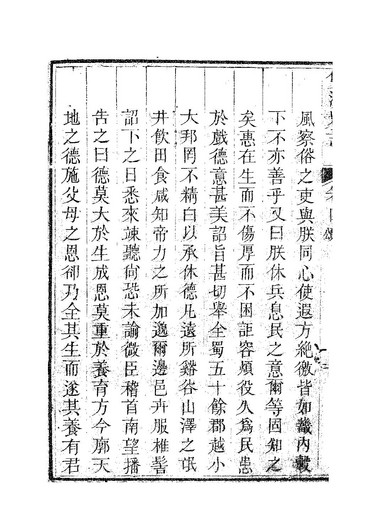 風察俗之吏與朕同心使遐方絶徼皆如畿內轂
下不亦善乎又曰朕休兵息民之意爾等固知之
矣惠在生而不傷厚而不困詎容煩役久為民患
於戲德意甚美詔旨甚切舉全蜀五十餘郡越小
大邦罔不精白以承休德凡遠所谿谷山澤之氓
井飲田食咸知帝力之所加逸爾邊邑卉服椎髻
詔下之日悉來竦聽何恐未諭微臣稽首南望播
告之曰德莫大於生成恩莫重於養育方今廓天
地之德施父母之恩卻乃全其生而遂其養有君